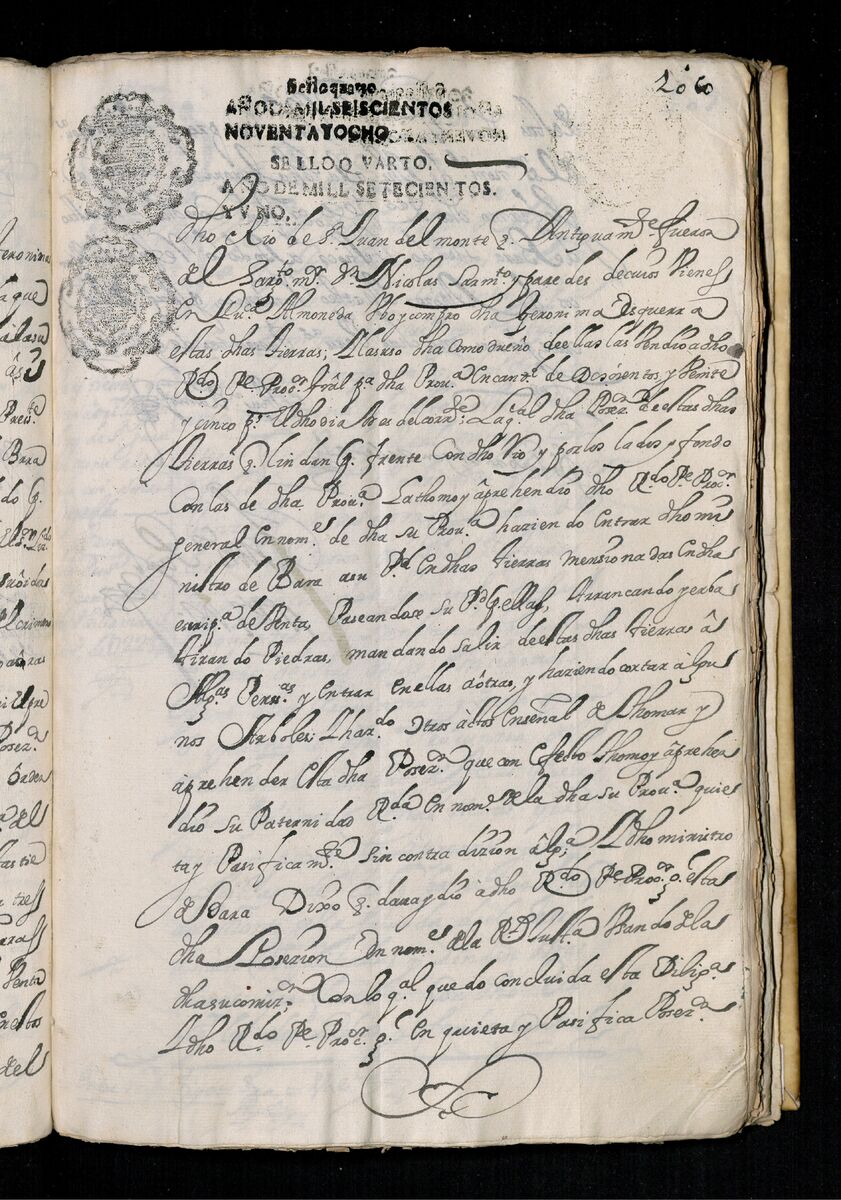 Sello quarto
AÑO DE MIL SEISCIENTOS
NOVENTA Y OCHO
SELLO QVARTO,
AÑO DE MILL SETECIENTOS.
Y VNO.
dho Rio de Sn. Juan del monte q. Antiguamte. fueron
del Sargto. mr. Dn. Nicolas Sarmto. y paredes de cuios Vienes
en pu.a Almoneda Vbo y compro dha Geronima Esquerra
estas dhas tierras; Y la suso dha como dueño de ellas las Vendio a dho
Rdo. Pe. Procor. Gral pa. dha Prova. en cantd. de Doscientos y Veinte
y cinco ps. el dho dia tres del corrte.; La ql. dha Poser. de estas dhas
tierras q. lindan q. frente con dho rio y por los lados y fondo
con las de dha Prova. La thomo y aprehendio dho Rdo. Pe. Procor.
general en nome. de dha su Prova. haziendo Entrar dho mi
nistro de Bara a su Pd. En dhas tierras mensionadas en dha
escripa. de Venta, Paseandose su Pd. q. ellas, Arrancando yerbas
tirando Piedras, mandando salir de estas dhas tierras â
Algas. Persas. y Entrar en ellas a otras, y haziendo cortar algu
nos Arboles; Y hazdo. otros actos en señal de thomar y
aprehender esta dha Poser. que con efecto thomo y aprehen
dio su Paternidad Rda. en nome. de la dha su Prova. quie
ta y Pasificamte. sin contradizion alga; Y dho ministro
de Bara Dixo q. daua y dio à dho Rdo. Pe. Procor. Gl. esta
dha Posezion en nome. de la Rl. Justa. Vsando de la
dha su comizon. Con lo ql. quedo concluida esta Diliga.
Y dho Rdo. Pe. Procor. Gl. en quieta y Pasifica Posezn.